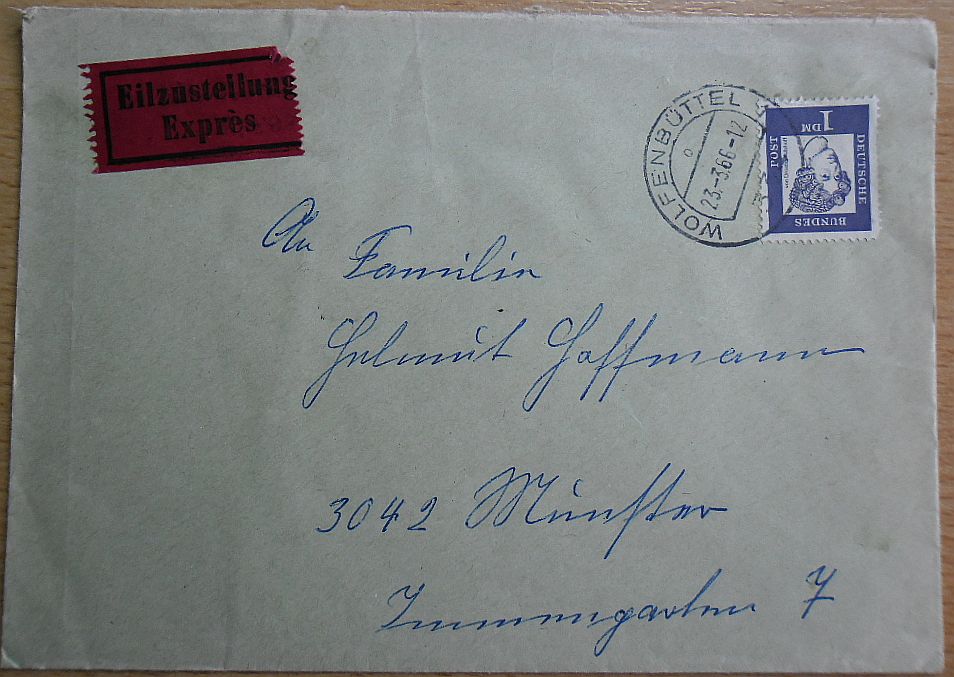 Eilzustellung
Exprès
WOLFENBÜTTEL
23.-3.66-12
1 DM
DEUTSCHE
BUNDES
POST
An
Familie
Helmut Hoffmann
3042 Münster
Immengarten 7